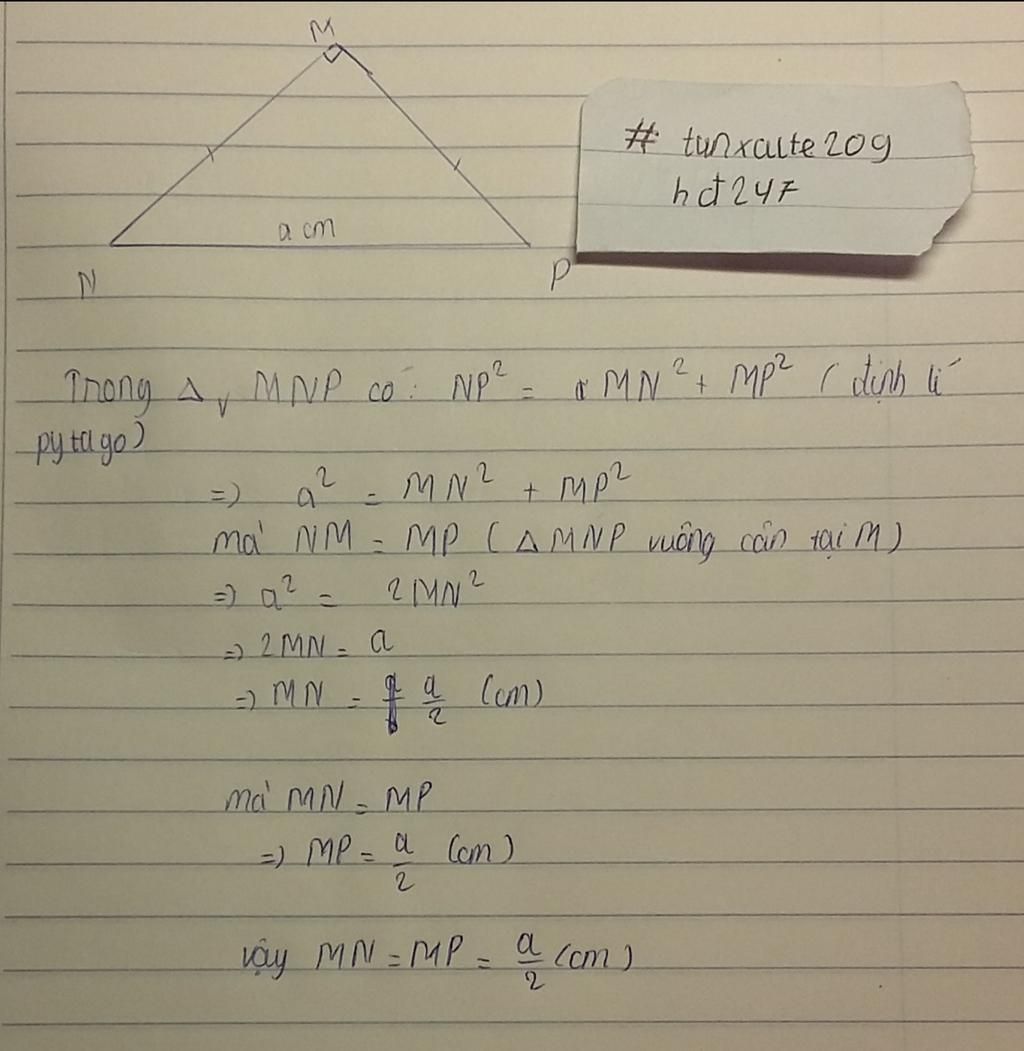 M
# tunxaute209
hđ247
a cm
N
P
Trong Δv MNP có: NP² = MN² + MP² (định lí
pytago)
=> a² = MN² + MP²
mà NM = MP (Δ MNP vuông cân tại M)
=> a² = 2MN²
=> 2MN = a
=> MN = a/2 (cm)
mà MN = MP
=> MP = a/2 (cm)
vậy MN = MP = a/2 (cm)